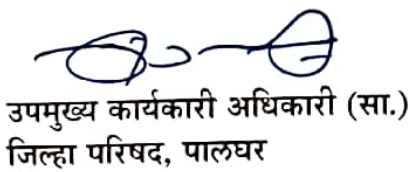 उपमुख्य कार्यकारी अधिकारी (सा.)
जिल्हा परिषद, पालघर